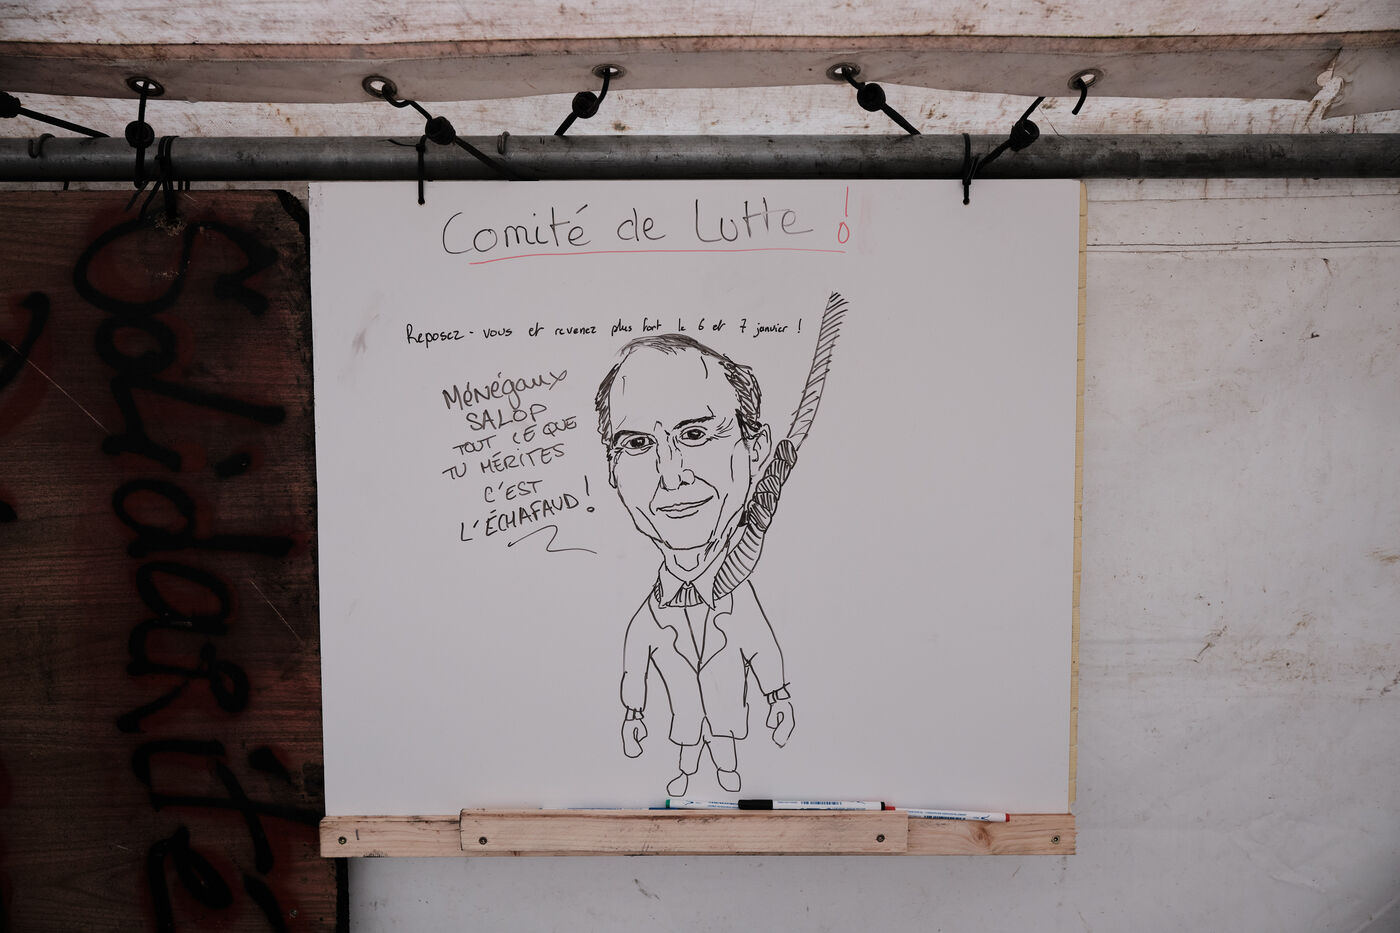 Comité de Lutte !
Reposez-vous et revenez plus fort le 6 et 7 janvier !
MéNégaux
SALOP
TOUT CE QUE
TU MÉRITES
C'EST
L'ÉCHAFAUD !
Solidarité